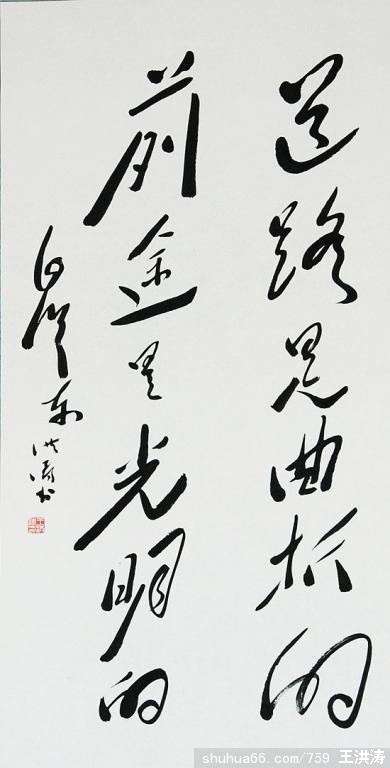 道路是曲折的
前途是光明的
东 洪涛书
shuhua66.com/759 王洪涛